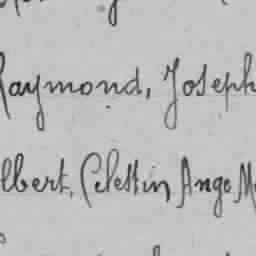 Raymond, Joseph
lbert, Célestin Ange M